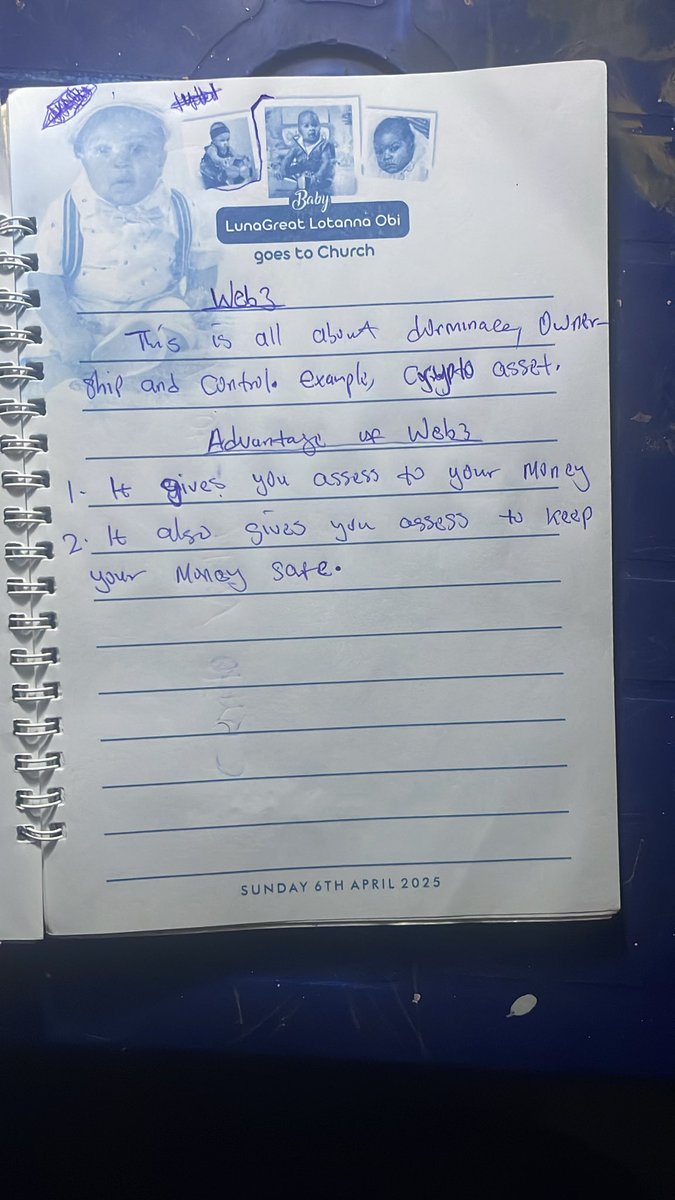 Baby
LunaGreat Lotanna Obi
goes to Church
Web3
This is all about dorminace, Owner-
ship and control. example, Crypto asset.
Advantage of Web3
1. It gives you assess to your Money
2. It also gives you assess to keep
your Money safe.
SUNDAY 6TH APRIL 2025